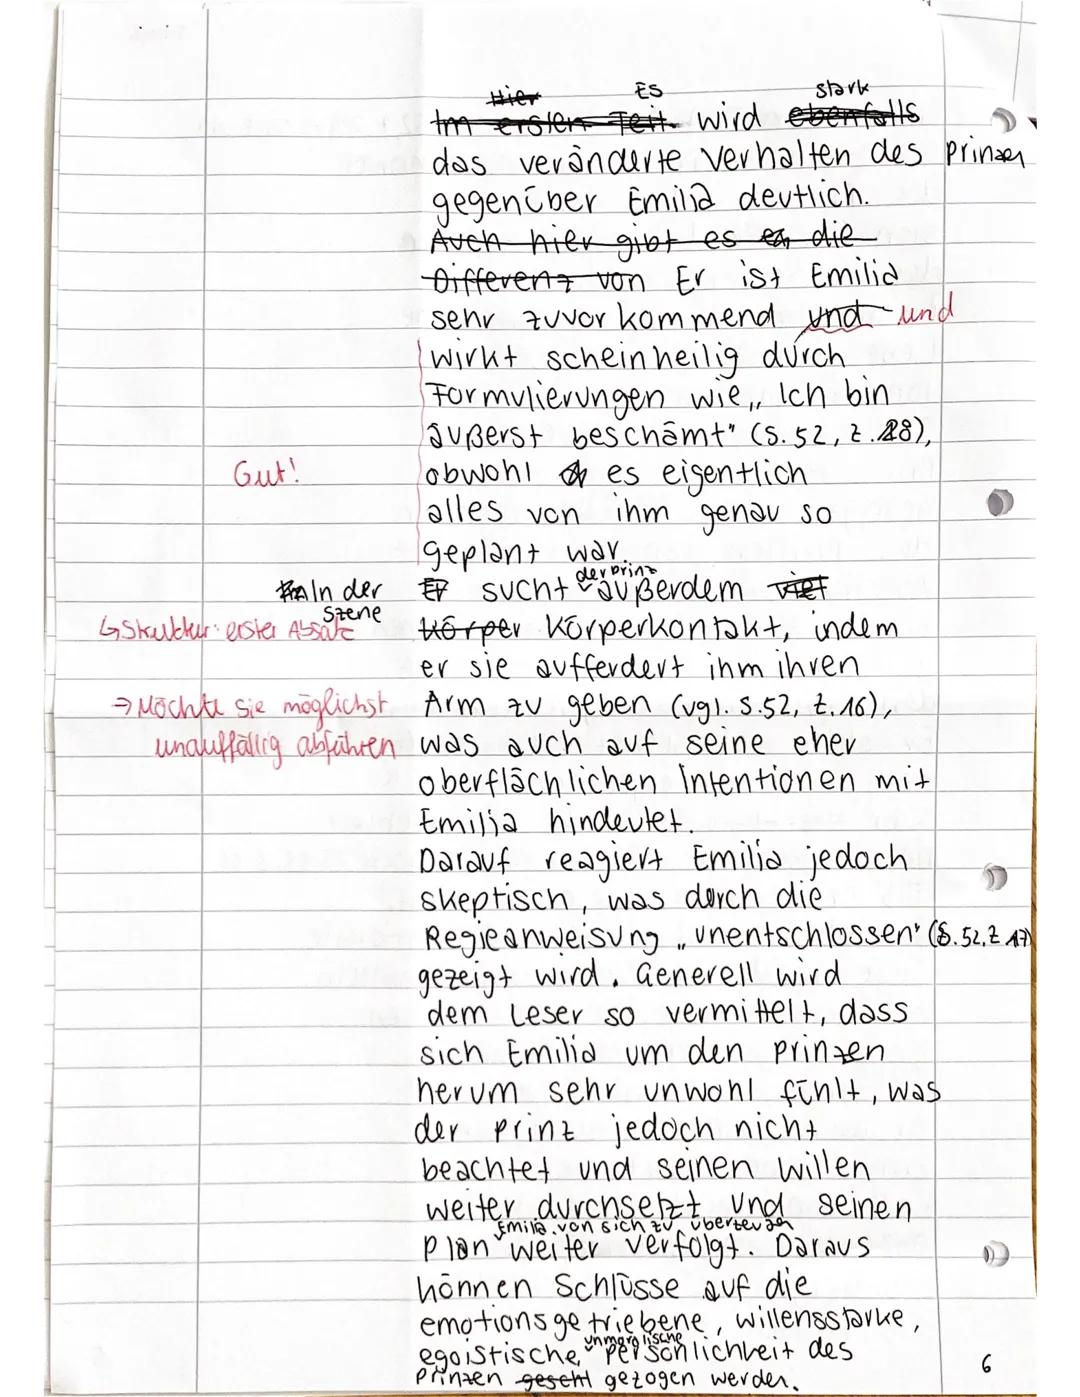 Hier Es stark
Im ersten Teil wird ebenfalls
das veränderte Verhalten des Prinzen
gegenüber Emilia deutlich.
Auch hier gibt es die
Differenz von Er ist Emilia
sehr zuvorkommend und und
wirkt scheinheilig durch
Formulierungen wie „Ich bin
äußerst beschämt" (S. 52, Z. 28),
Gut! obwohl es eigentlich
alles von ihm genau so
geplant war.
der Prinz
In der Er sucht außerdem viel
Szene
↳ Struktur: erster Absatz körper Körperkontakt, indem
er sie aufferdert ihm ihren
→ Möchte sie möglichst Arm zu geben (vgl. S. 52, Z. 16),
unauffällig abführen was auch auf seine eher
oberflächlichen Intentionen mit
Emilia hindeutet.
Darauf reagiert Emilia jedoch
skeptisch, was durch die
Regieanweisung „unentschlossen" (S. 52, Z 17)
gezeigt wird. Generell wird
dem Leser so vermittelt, dass
sich Emilia um den Prinzen
herum sehr unwohl fühlt, was
der Prinz jedoch nicht
beachtet und seinen Willen
weiter durchsetzt und seinen
Emilia von sich zu überzeugen
Plan weiter verfolgt. Daraus
können Schlüsse auf die
emotionsgetriebene, willensstarke,
unmoralische
egoistische, Persönlichkeit des
Prinzen gezogen werden.
6